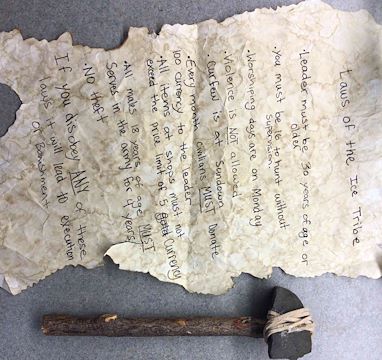 Laws of the Ice Tribe
•Leader must be 30 years of age or
older
•You must be 16 to hunt without
supervision
•Worshiping days are on Monday
•Violence is NOT allowed
•Curfew is at Sundown
•Every month civilians MUST Donate
100 currency to the leader
•All items at shops must not
exceed the price limit of 5 currency
•All males 18 years of age MUST
Serve in the army for 4 years
•NO theft
If you disobey ANY of these
laws it will lead to execution
or Banishment